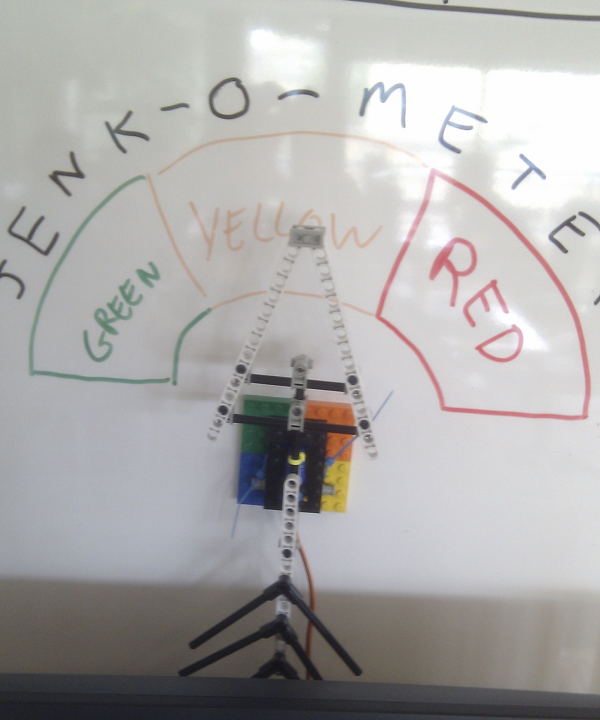 JENK-O-METE
GREEN
YELLOW
RED